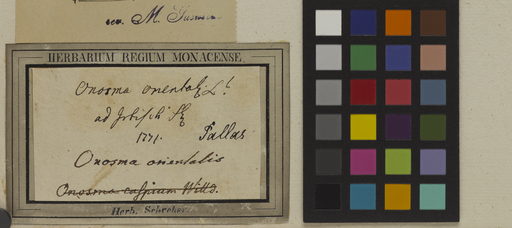 rev. M.
HERBARIUM REGIUM MONACENSE
Onosma orientalis L.
ad
1771. Pallas
Onosma orientalis
Onosma caspium Willd.
Herb. Schreber